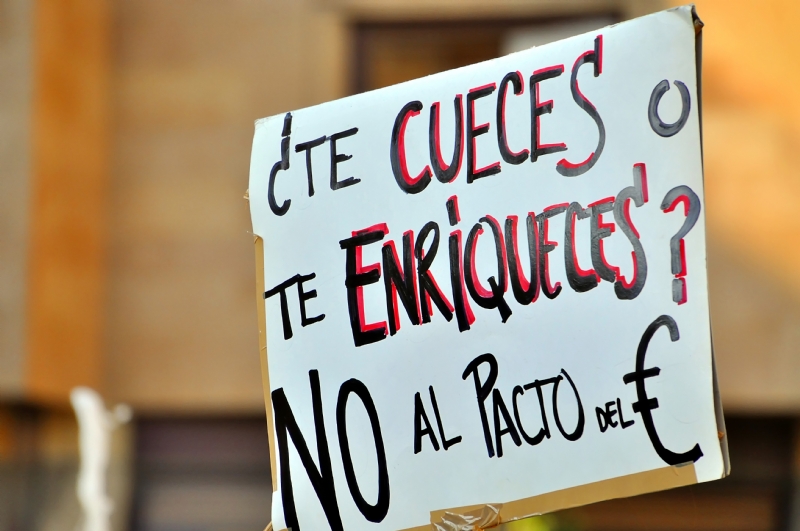 ¿TE CUECES O
TE ENRIQUECES?
NO AL PACTO DEL €